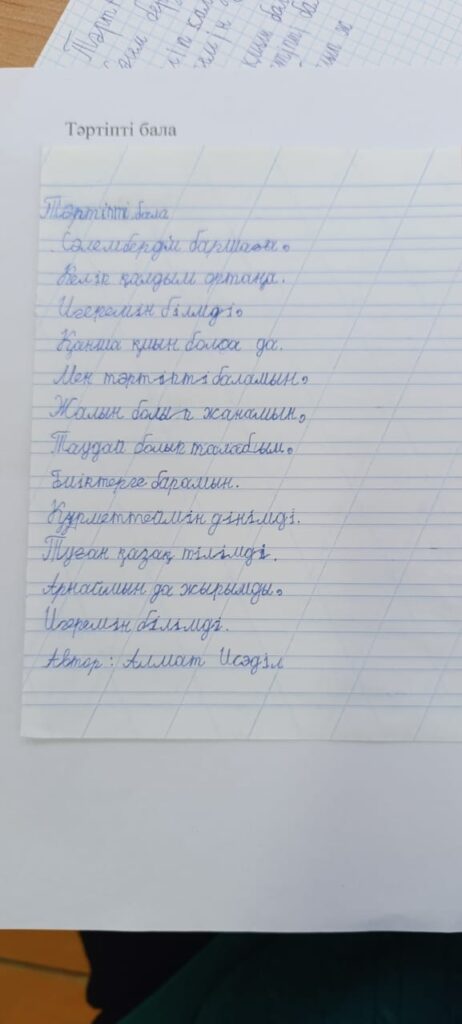 Тәртіпті бала
Тәртіпті бала
Сәлембердім баршаңа.
Келік қалдым ортаңа.
Игеремін білмді.
Қанша қиын болса да.
Мен тәртіпті баламын.
Жалын болып жанамын.
Таудай болып талабым.
Биіктерге барамын.
Құрметтеймін дінімді.
Туған қазақ тілімді.
Арнаймын да жырымды.
Игеремін білімді.
Автор: Алмат Исәділ